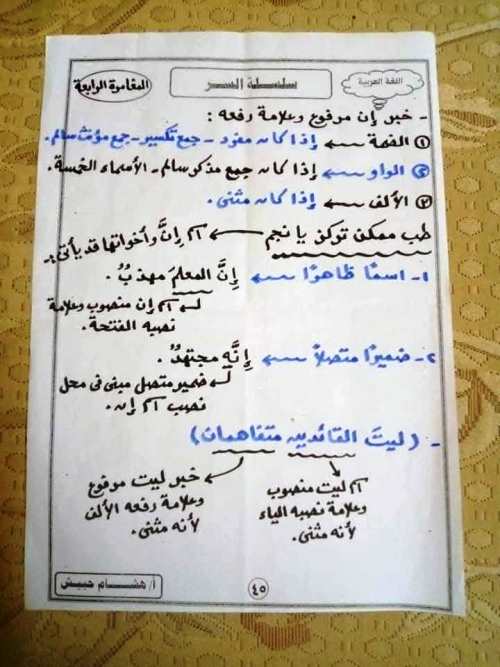 اللغة العربية
سلسلة السر
المغامرة الرابعة
- خبر إن مرفوع وعلامة رفعه :
① الضمة ← إذا كان مفرد - جمع تكسير - جمع مؤنث سالم.
② الواو ← إذا كان جمع مذكر سالم - الأسماء الخمسة.
③ الألف ← إذا كان مثنى.
طب ممكن توكن يا نجم ← اسم إنَّ وأخواتها قد يأتى :-
١- اسمًا ظاهرًا ← إنَّ المعلمَ مهذبٌ.
اسم إن منصوب وعلامة
نصبه الفتحة.
٢- ضميرًا متصلاً ← إنَّه مجتهدٌ.
ضمير متصل مبنى فى محل
نصب اسم إن.
- (ليتَ القائدين متفاهمان)
اسم ليت منصوب
وعلامة نصبه الياء
لأنه مثنى.
خبر ليت مرفوع
وعلامة رفعه الألف
لأنه مثنى.
أ/ هشام حبيش
٤٥